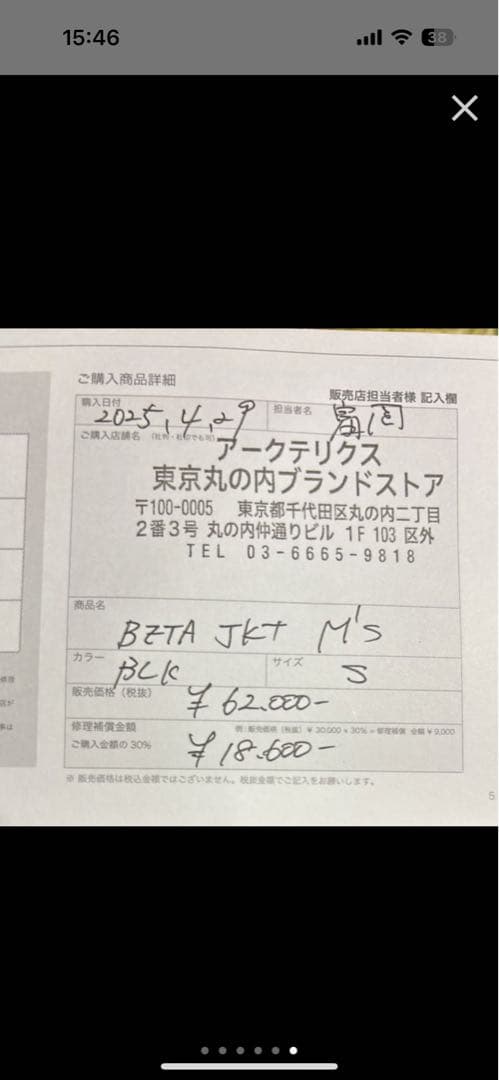 15:46
38
ご購入商品詳細
販売店担当者様 記入欄
購入日付
2025,4,29
担当者名
ご購入店舗名
アークテリクス
東京丸の内ブランドストア
〒100-0005 東京都千代田区丸の内二丁目
2番3号 丸の内仲通りビル 1F 103 区外
TEL 03-6665-9818
商品名
BETA JKT M's
カラー
BLK
サイズ
S
販売価格(税抜)
¥62.000-
修理補償金額
例:販売価格(税抜)¥30,000×30%=修理補償 金額¥9,000
ご購入金額の30%
¥18.600-
※ 販売価格は税込金額ではございません。税抜金額でご記入をお願いします。
5